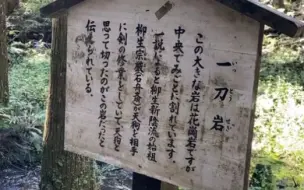 一刀岩
いっ とう せき
この大きな岩は花崗岩ですが
中央でみごとに割れています。
一説によると柳生新陰流の始祖
柳生宗厳石舟斎が天狗を相手
に剣の修業をしていて天狗と
思って切ったのがこの岩だったと
伝えられている。